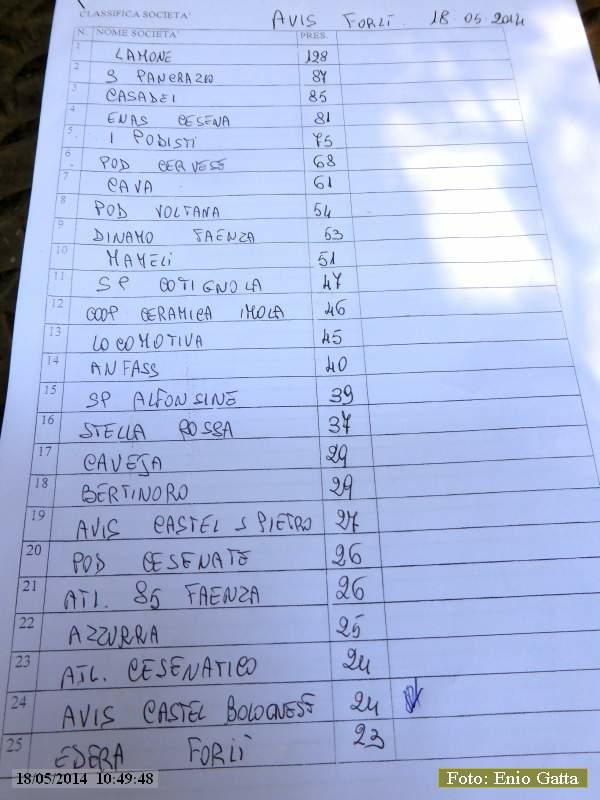 CLASSIFICA SOCIETA' AVIS FORLÌ 18.05.2014
N. NOME SOCIETA' PRES.
1 LAMONE 128
2 S PANCRAZIO 87
3 CASADEI 85
4 ENAS CESENA 81
5 I PODISTI 75
6 POD CERVESE 68
7 CAVA 61
8 POD VOLTANA 54
9 DINAMO FAENZA 53
10 MAMELI 51
11 SP COTIGNOLA 47
12 COOP CERAMICA IMOLA 46
13 LOCOMOTIVA 45
14 ANFASS 40
15 SP ALFONSINE 39
16 STELLA ROSSA 37
17 CAVEJA 29
18 BERTINORO 29
19 AVIS CASTEL S PIETRO 27
20 POD CESENATE 26
21 ATL. 85 FAENZA 26
22 AZZURRA 25
23 ATL. CESENATICO 24
24 AVIS CASTEL BOLOGNESE 24
25 EDERA FORLÌ 23
18/05/2014 10:49:48
Foto: Enio Gatta